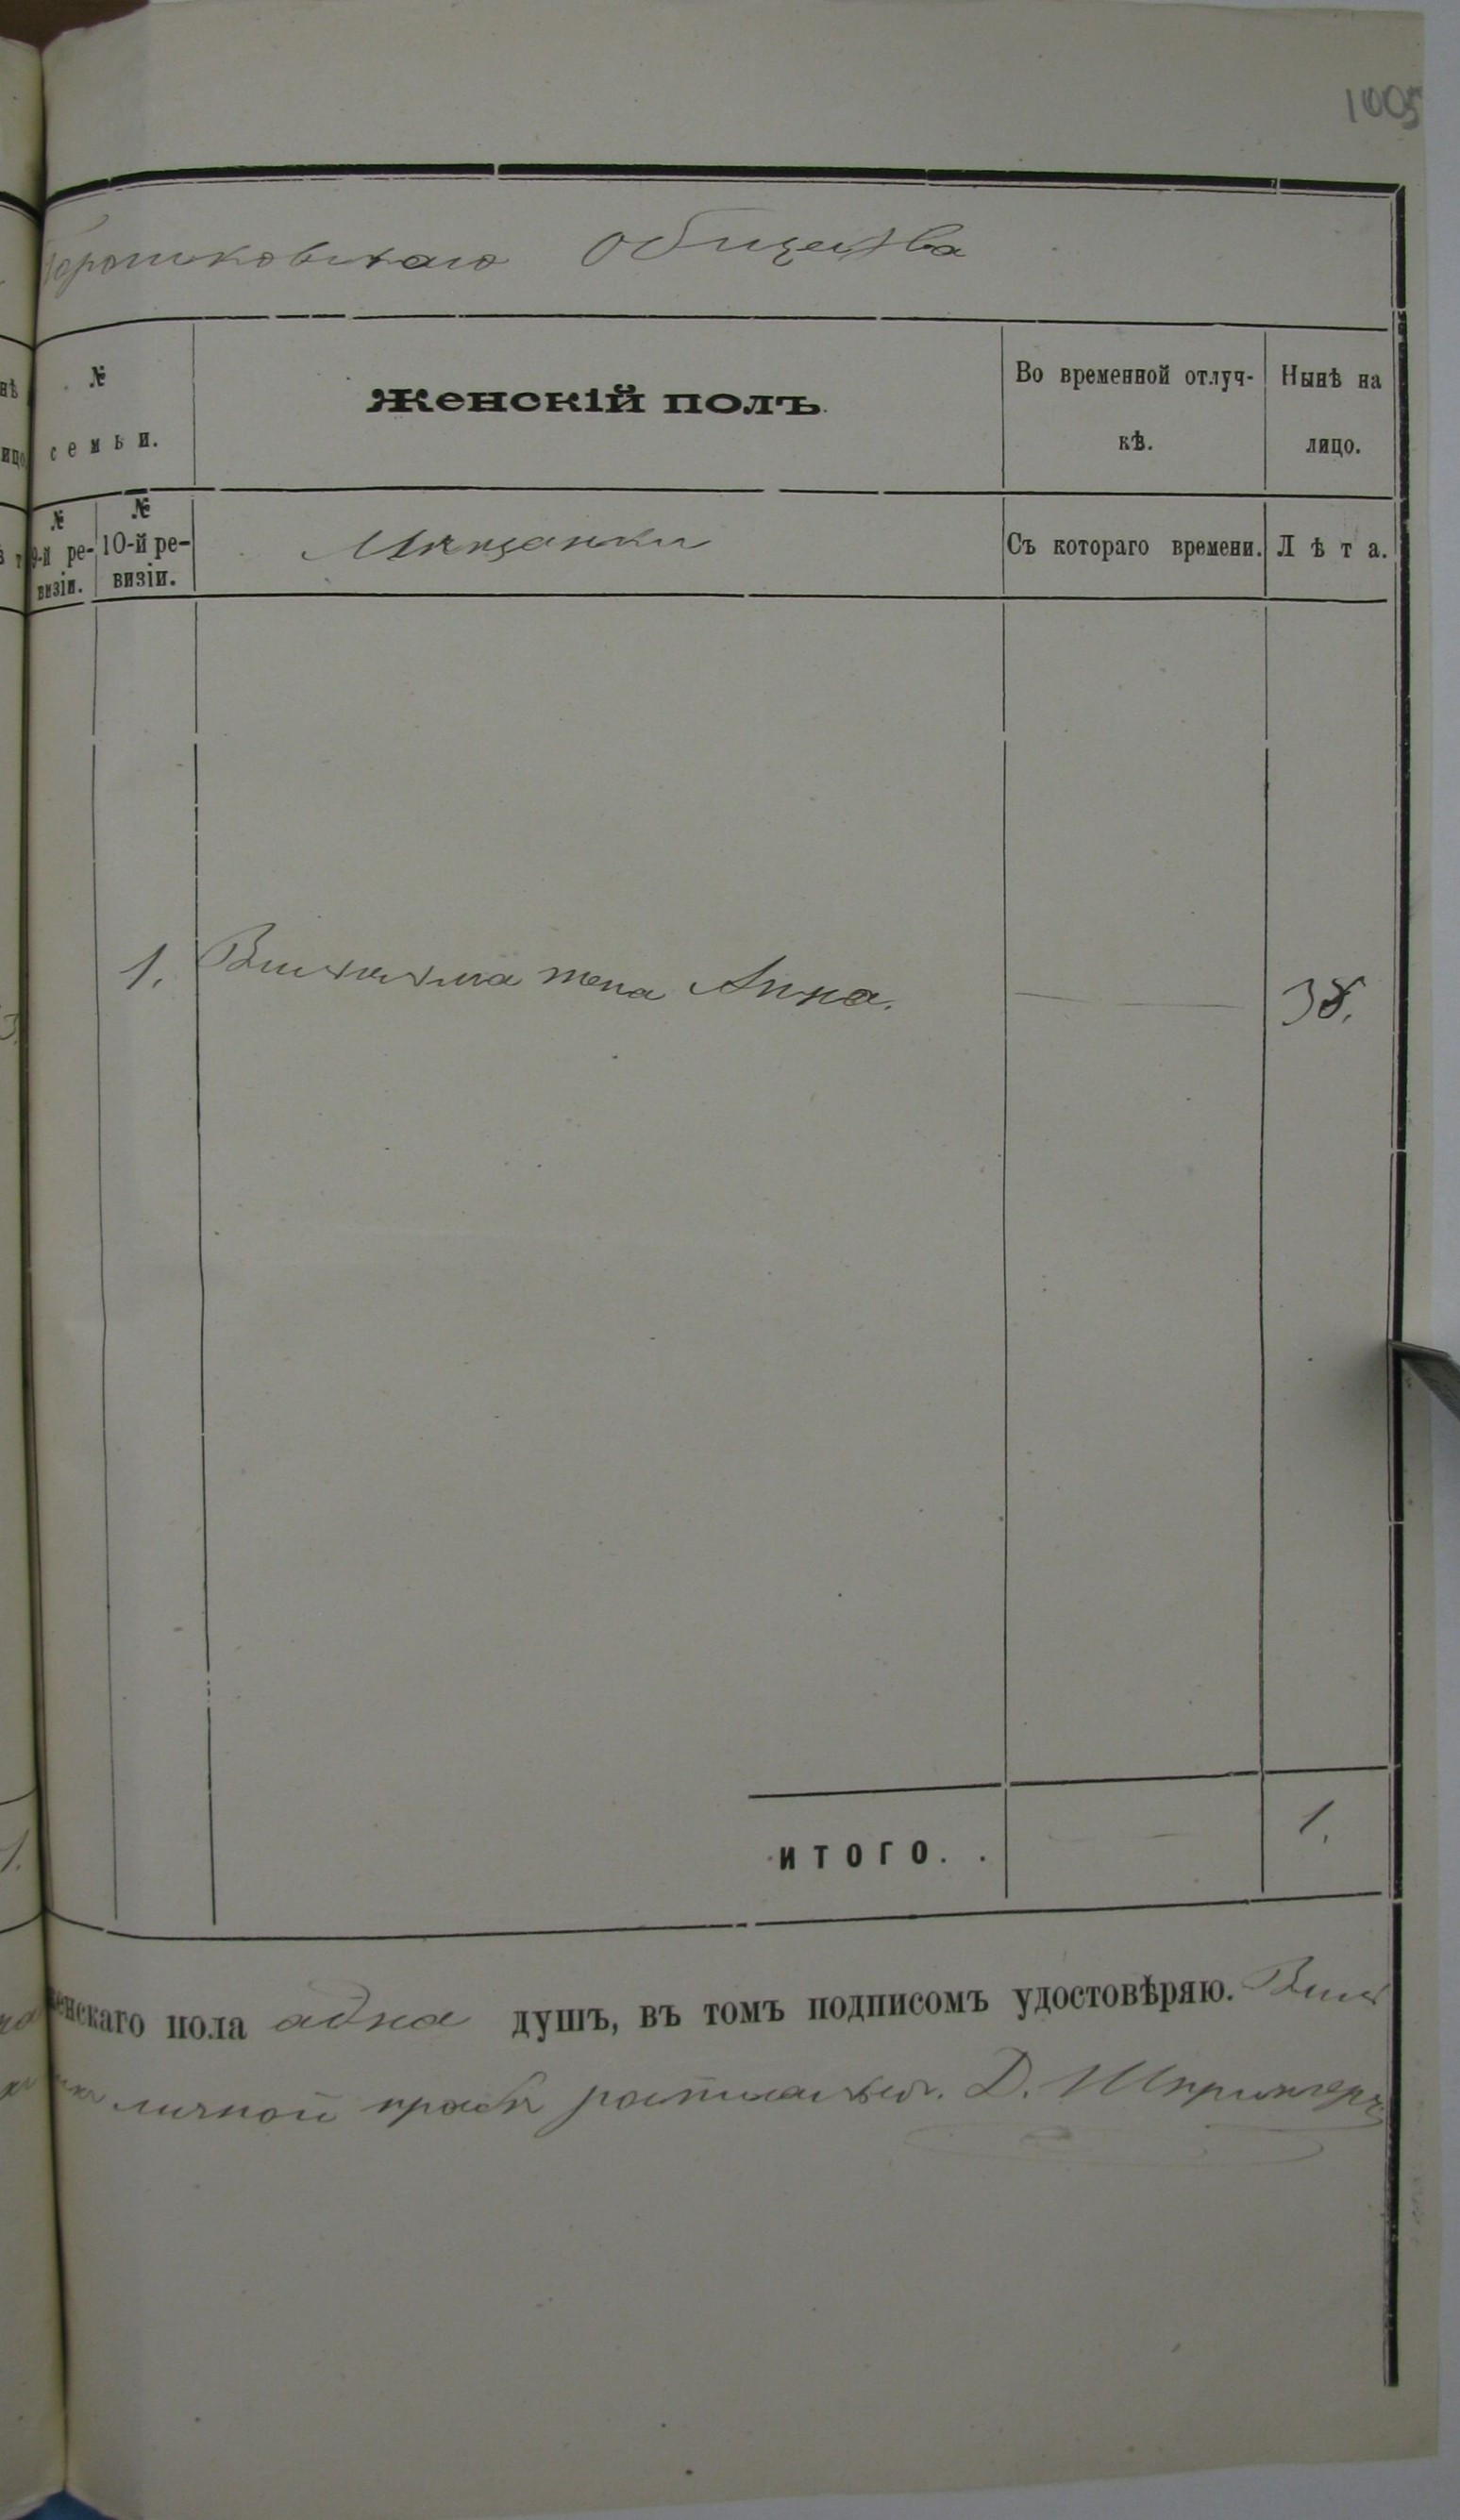 1005
общества
№
семьи.
Женскій полъ.
Во временной отлуч-
кѣ.
Нынѣ на
лицо.
№
9-й ре-
визіи.
№
10-й ре-
визіи.
Мѣщанки
Съ котораго времени.
Лѣта.
1. жена Анна. 38.
итого. . 1.
женскаго пола адна душъ, въ томъ подписомъ удостовѣряю.
личной Д. Шпрингеръ